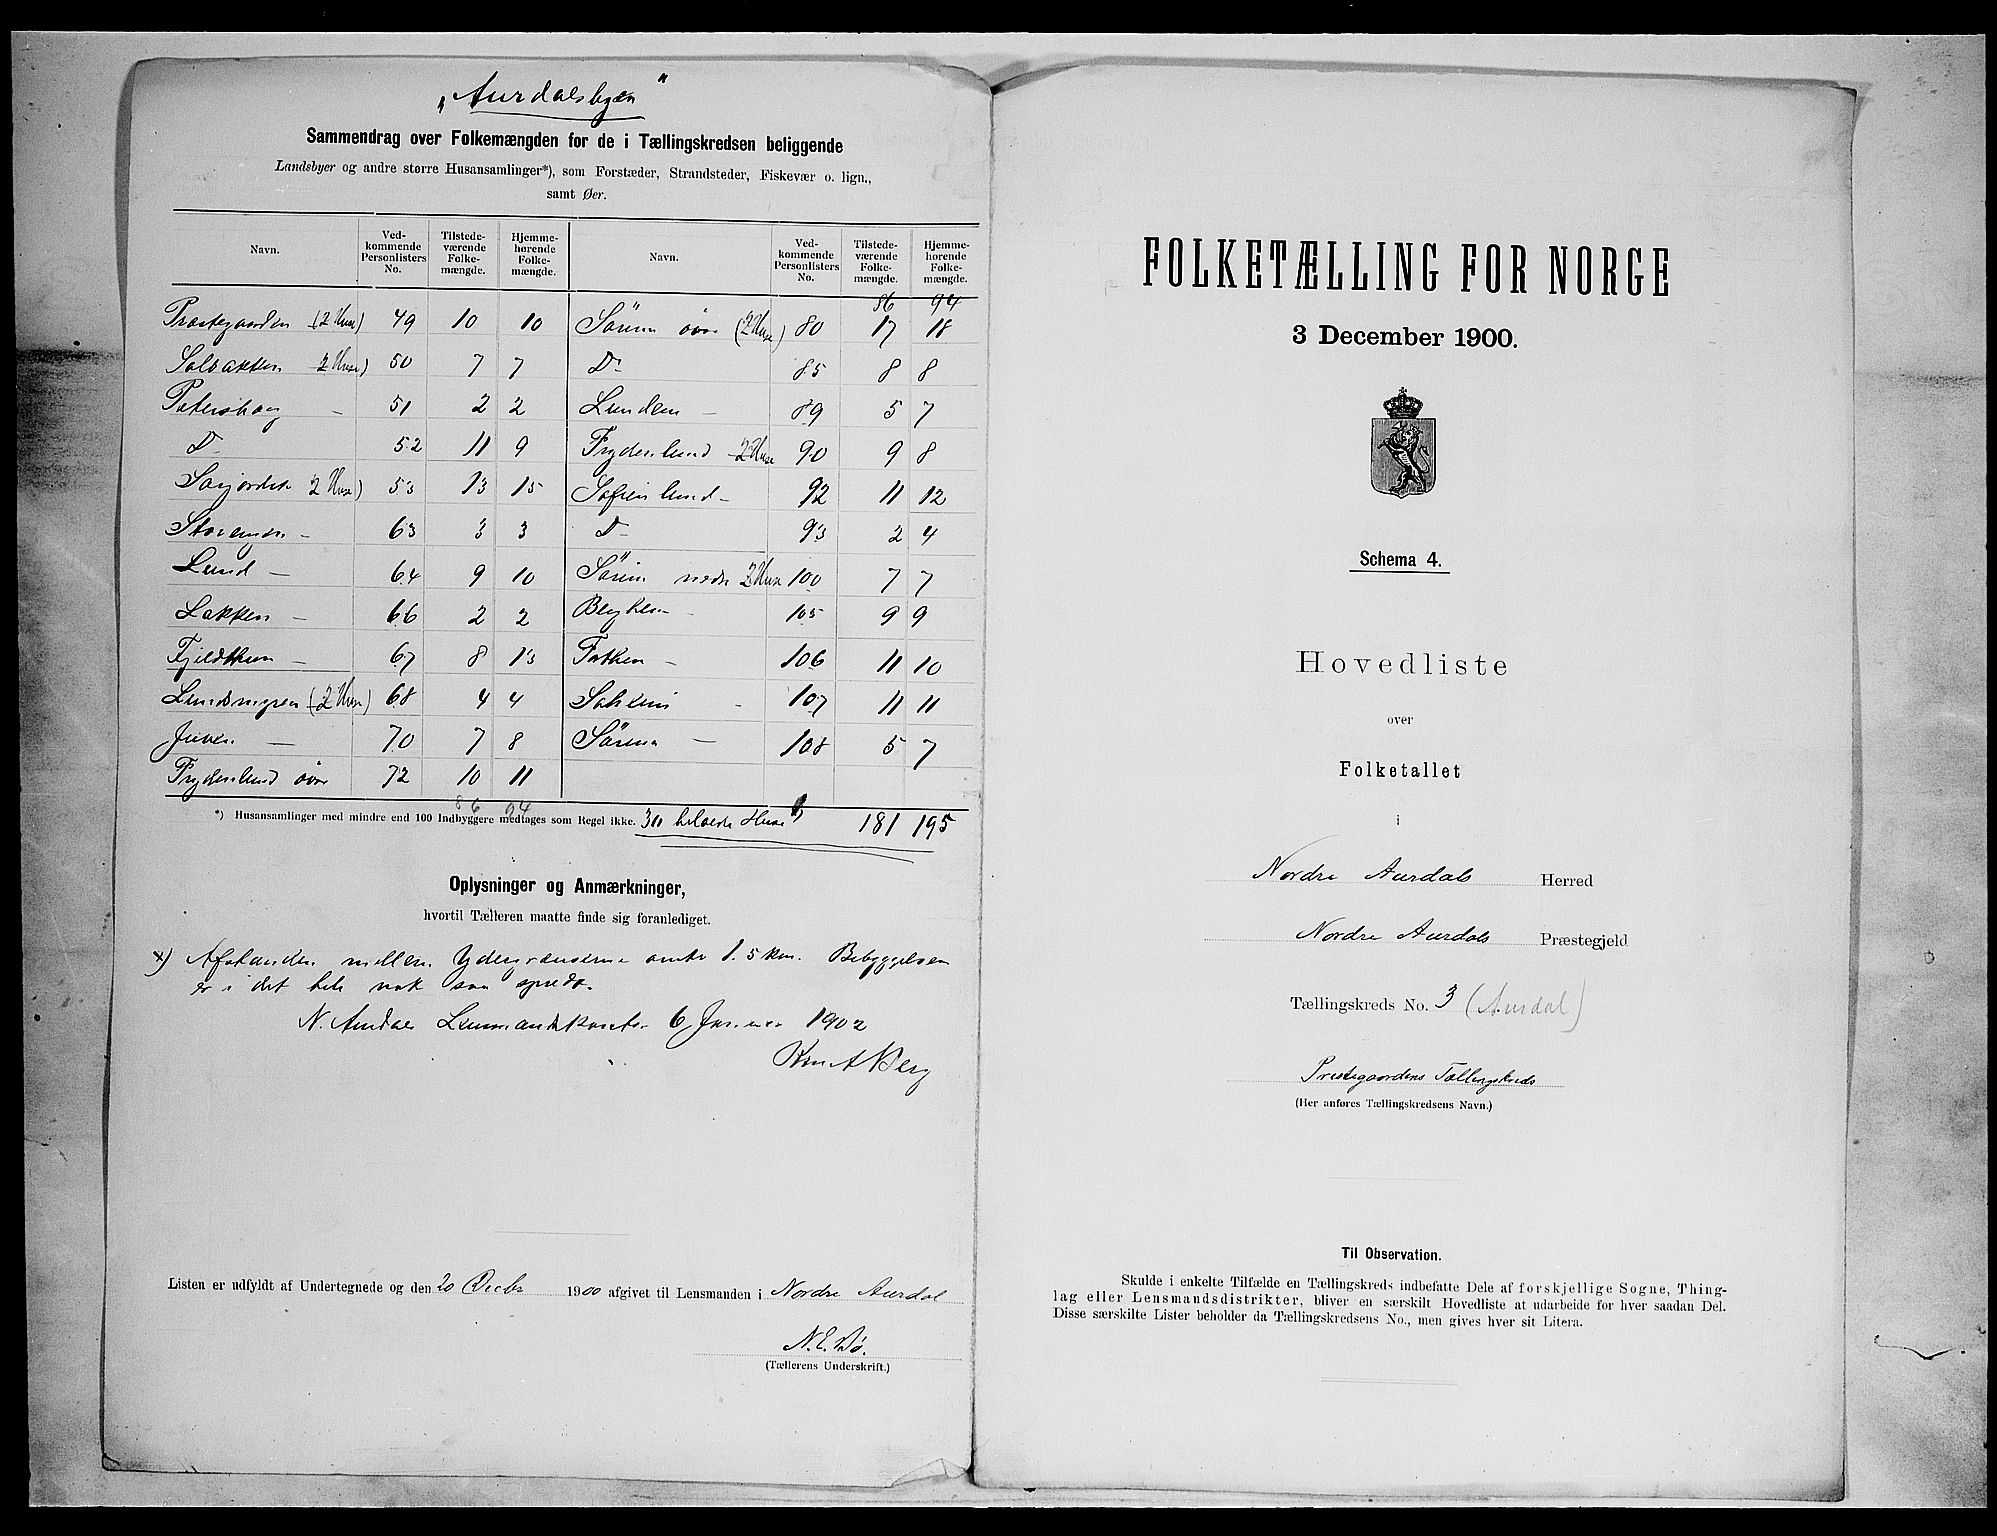 „Aurdalsbyen"
Sammendrag over Folkemængden for de i Tællingskredsen beliggende
Landsbyer og andre større Husansamlinger*), som Forstæder, Strandsteder, Fiskevær o. lign.,
samt Øer.
Navn. Ved-kommende Personlisters No. Tilstede-værende Folke-mængde. Hjemme-hørende Folke-mængde. Navn. Ved-kommende Personlisters No. Tilstede-værende Folke-mængde. Hjemme-hørende Folke-mængde.
86 94
Præstegaarden (2 Huse) 49 10 10 Sörum övre (2 Huse) 80 17 18
Solbakken 2 Huse) 50 7 7 Do 85 8 8
Petershaug – 51 2 2 Lunden – 89 5 7
Do 52 11 9 Frydenlund 2 Huse 90 9 8
2 Huse) 53 13 15 Sofienlund – 92 11 12
– 63 3 3 Do 93 2 4
Lund – 64 9 10 Sörum nedre 2 Huse 100 7 7
Bakken – 66 2 2 105 9 9
Fjeldheim – 67 8 13 – 106 11 10
Lundsmyren (2 Huse) 68 4 4 – 107 11 11
Juven – 70 7 8 – 108 5 7
Frydenlund övre 72 10 11
86 94
*) Husansamlinger med mindre end 100 Indbyggere medtages som Regel ikke. 30 beboede Huse 181 195
Oplysninger og Anmærkninger,
hvortil Tælleren maatte finde sig foranlediget.
x) Afstanden mellem Ydergrænserne omtr 1.5 km. Bebyggelsen
er i det hele nok saa spredt.
N. Aurdal Lensmandskontor 6 Januar 1902
Knut Berg
Listen er udfyldt af Undertegnede og den 20 Decbr 1900 afgivet til Lensmanden i Nordre Aurdal
N. E. Bø.
(Tællerens Underskrift.)
FOLKETÆLLING FOR NORGE
3 December 1900.
Schema 4.
Hovedliste
over
Folketallet
i
Nordre Aurdals Herred
Nordre Aurdals Præstegjeld
Tællingskreds No. 3 (Aurdal)
Prestegaardens Tællingskreds
(Her anføres Tællingskredsens Navn.)
Til Observation.
Skulde i enkelte Tilfælde en Tællingskreds indbefatte Dele af forskjellige Sogne, Thing-
lag eller Lensmandsdistrikter, bliver en særskilt Hovedliste at udarbeide for hver saadan Del.
Disse særskilte Lister beholder da Tællingskredsens No., men gives hver sit Litera.